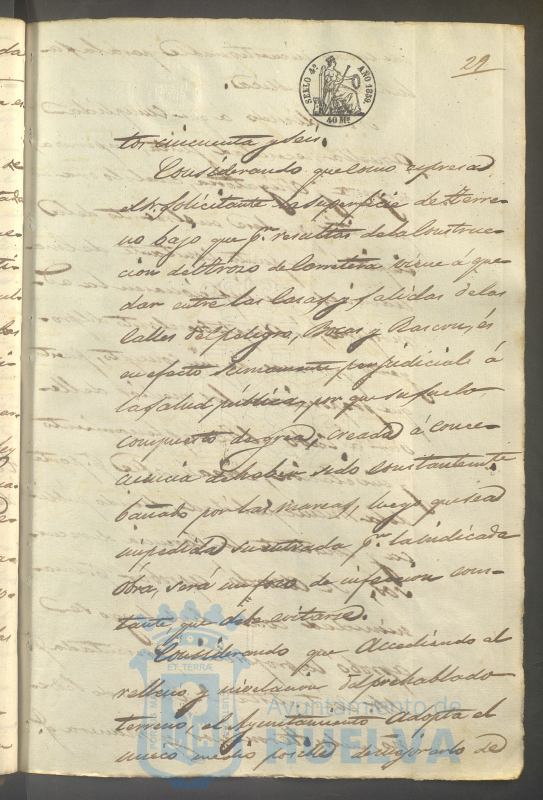 29
SELLO 4º AÑO 1859.
40 Ms.
tos cincuenta y seis.
Considerando que como espresa
el Sr. solicitante la superficie de terre-
no bajo que pr. resultas de la Construc-
cion del trozo de Carretera viene á que-
dar entre las Casas y salidas de las
Calles del peligro, Bocas y Rascon, és
en efecto sumamente perjudicial á
la salud pública, por que su suelo
compuesto de greda, creada á conce-
cuencia de haber sido constantemte.
bañado por las mareas, luego que sea
impedida su entrada pr. la indicada
obra, será un foco de infeccion cons-
tante que debe evitarse.
Considerando que accediendo al
relleno y nivelacion del prehablado
terreno, el Ayuntamiento adopta el
unico medio posible de mejorarlo de
ET TERRÆ
Ayuntamiento de
HUELVA